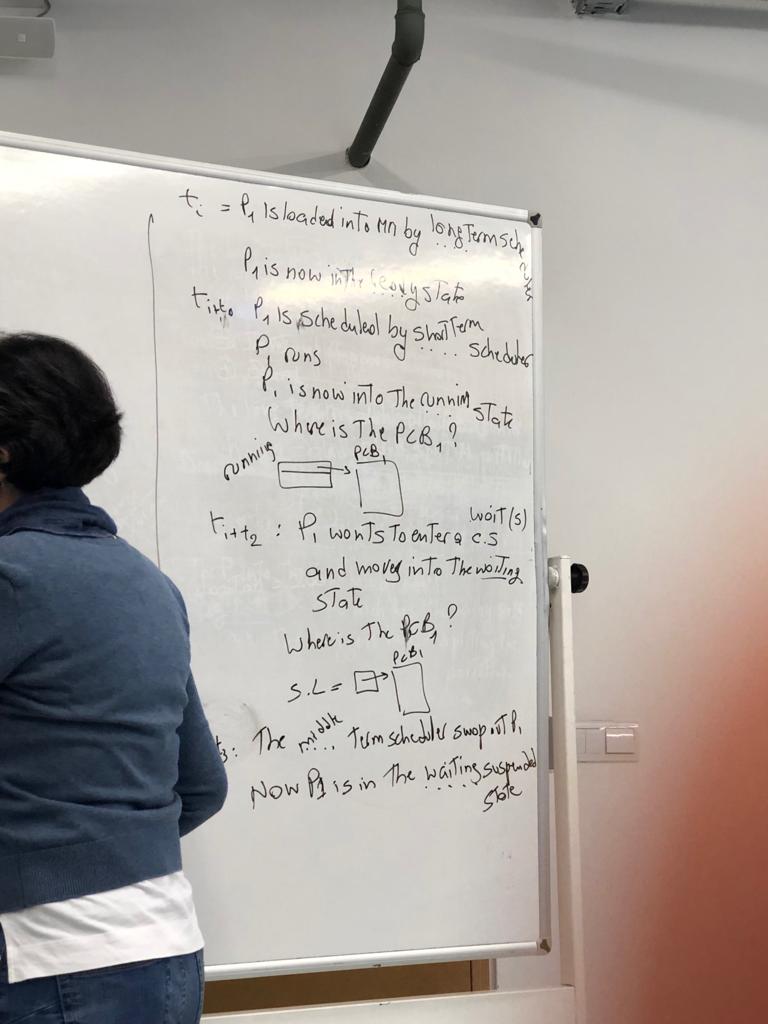 ti = P1 is loaded into MM by long Term sche
P1 is now in the ready state
P1 is scheduled by short Term scheduler
P1 runs
P1 is now into The runnin state
Where is The PCB1?
running
PCB1
wait(s)
ti+t2 : P1 wants to enter a c.s
and moves into the waiting
state
Where is The PCB1?
PCB1
S.L =
t3: The middle Term scheduler swap out P1
Now P1 is in the waiting suspended
state